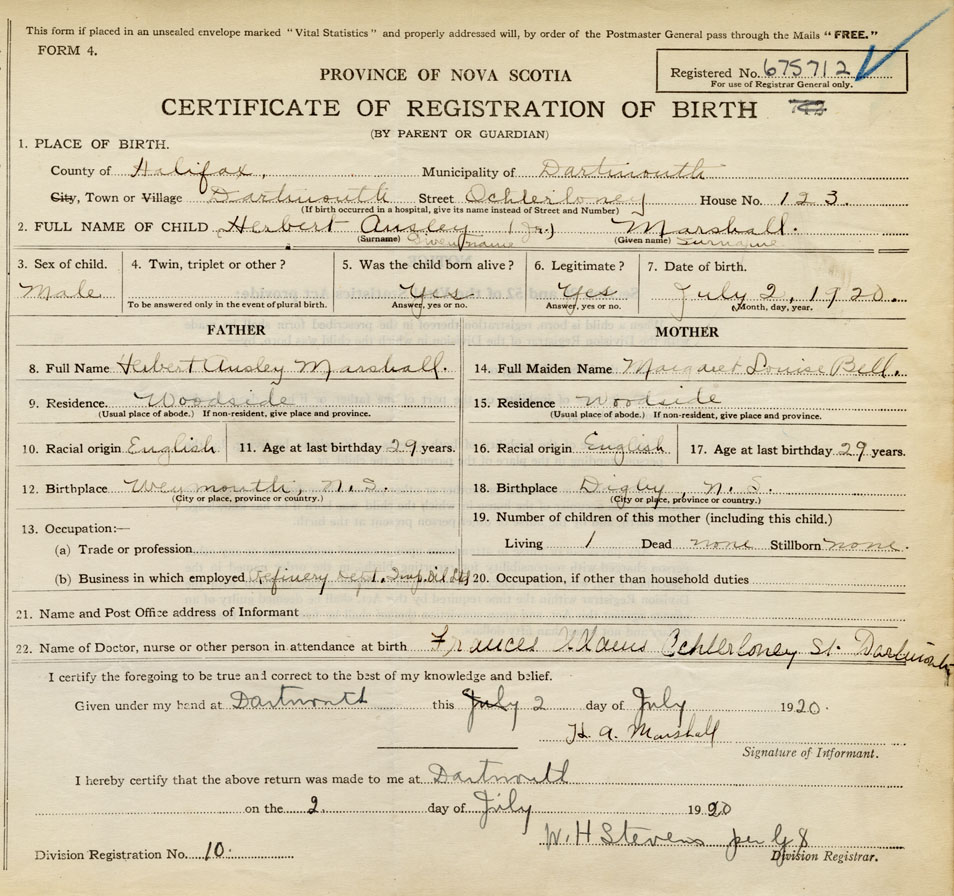 This form if placed in an unsealed envelope marked "Vital Statistics" and properly addressed will, by order of the Postmaster General pass through the Mails "FREE."
FORM 4.
Registered No. 675712
For use of Registrar General only.
PROVINCE OF NOVA SCOTIA
CERTIFICATE OF REGISTRATION OF BIRTH
(BY PARENT OR GUARDIAN)
1. PLACE OF BIRTH.
County of Halifax, Municipality of Dartmouth
City, Town or Village Dartmouth Street Ochterloney House No. 123.
(If birth occurred in a hospital, give its name instead of Street and Number)
2. FULL NAME OF CHILD Herbert Ansley (Jr.) Marshall.
(Surname) Given name (Given name) Surname
3. Sex of child. 4. Twin, triplet or other? 5. Was the child born alive? 6. Legitimate? 7. Date of birth.
Male Yes Yes July 2, 1920.
To be answered only in the event of plural birth. Answer, yes or no. Answer, yes or no. Month, day, year.
FATHER MOTHER
8. Full Name Herbert Ansley Marshall. 14. Full Maiden Name Margaret Louise Bell.
9. Residence. Woodside 15. Residence Woodside
(Usual place of abode.) If non-resident, give place and province. (Usual place of abode.) If non-resident, give place and province.
10. Racial origin English 11. Age at last birthday 29 years. 16. Racial origin English 17. Age at last birthday 29 years.
12. Birthplace Weymouth, N.S. 18. Birthplace Digby, N.S.
(City or place, province or country.) (City or place, province or country.)
13. Occupation:— 19. Number of children of this mother (including this child.)
(a) Trade or profession Living 1 Dead none Stillborn none.
(b) Business in which employed Refinery Dept. Imp. Oil 20. Occupation, if other than household duties
21. Name and Post Office address of Informant
22. Name of Doctor, nurse or other person in attendance at birth Frances Ochterloney St. Dartmouth
I certify the foregoing to be true and correct to the best of my knowledge and belief.
Given under my hand at Dartmouth this July 2 day of July 1920.
H. A. Marshall
Signature of Informant.
I hereby certify that the above return was made to me at Dartmouth
on the 2. day of July 1920
W. H Stevens per
Division Registrar.
Division Registration No. 10.